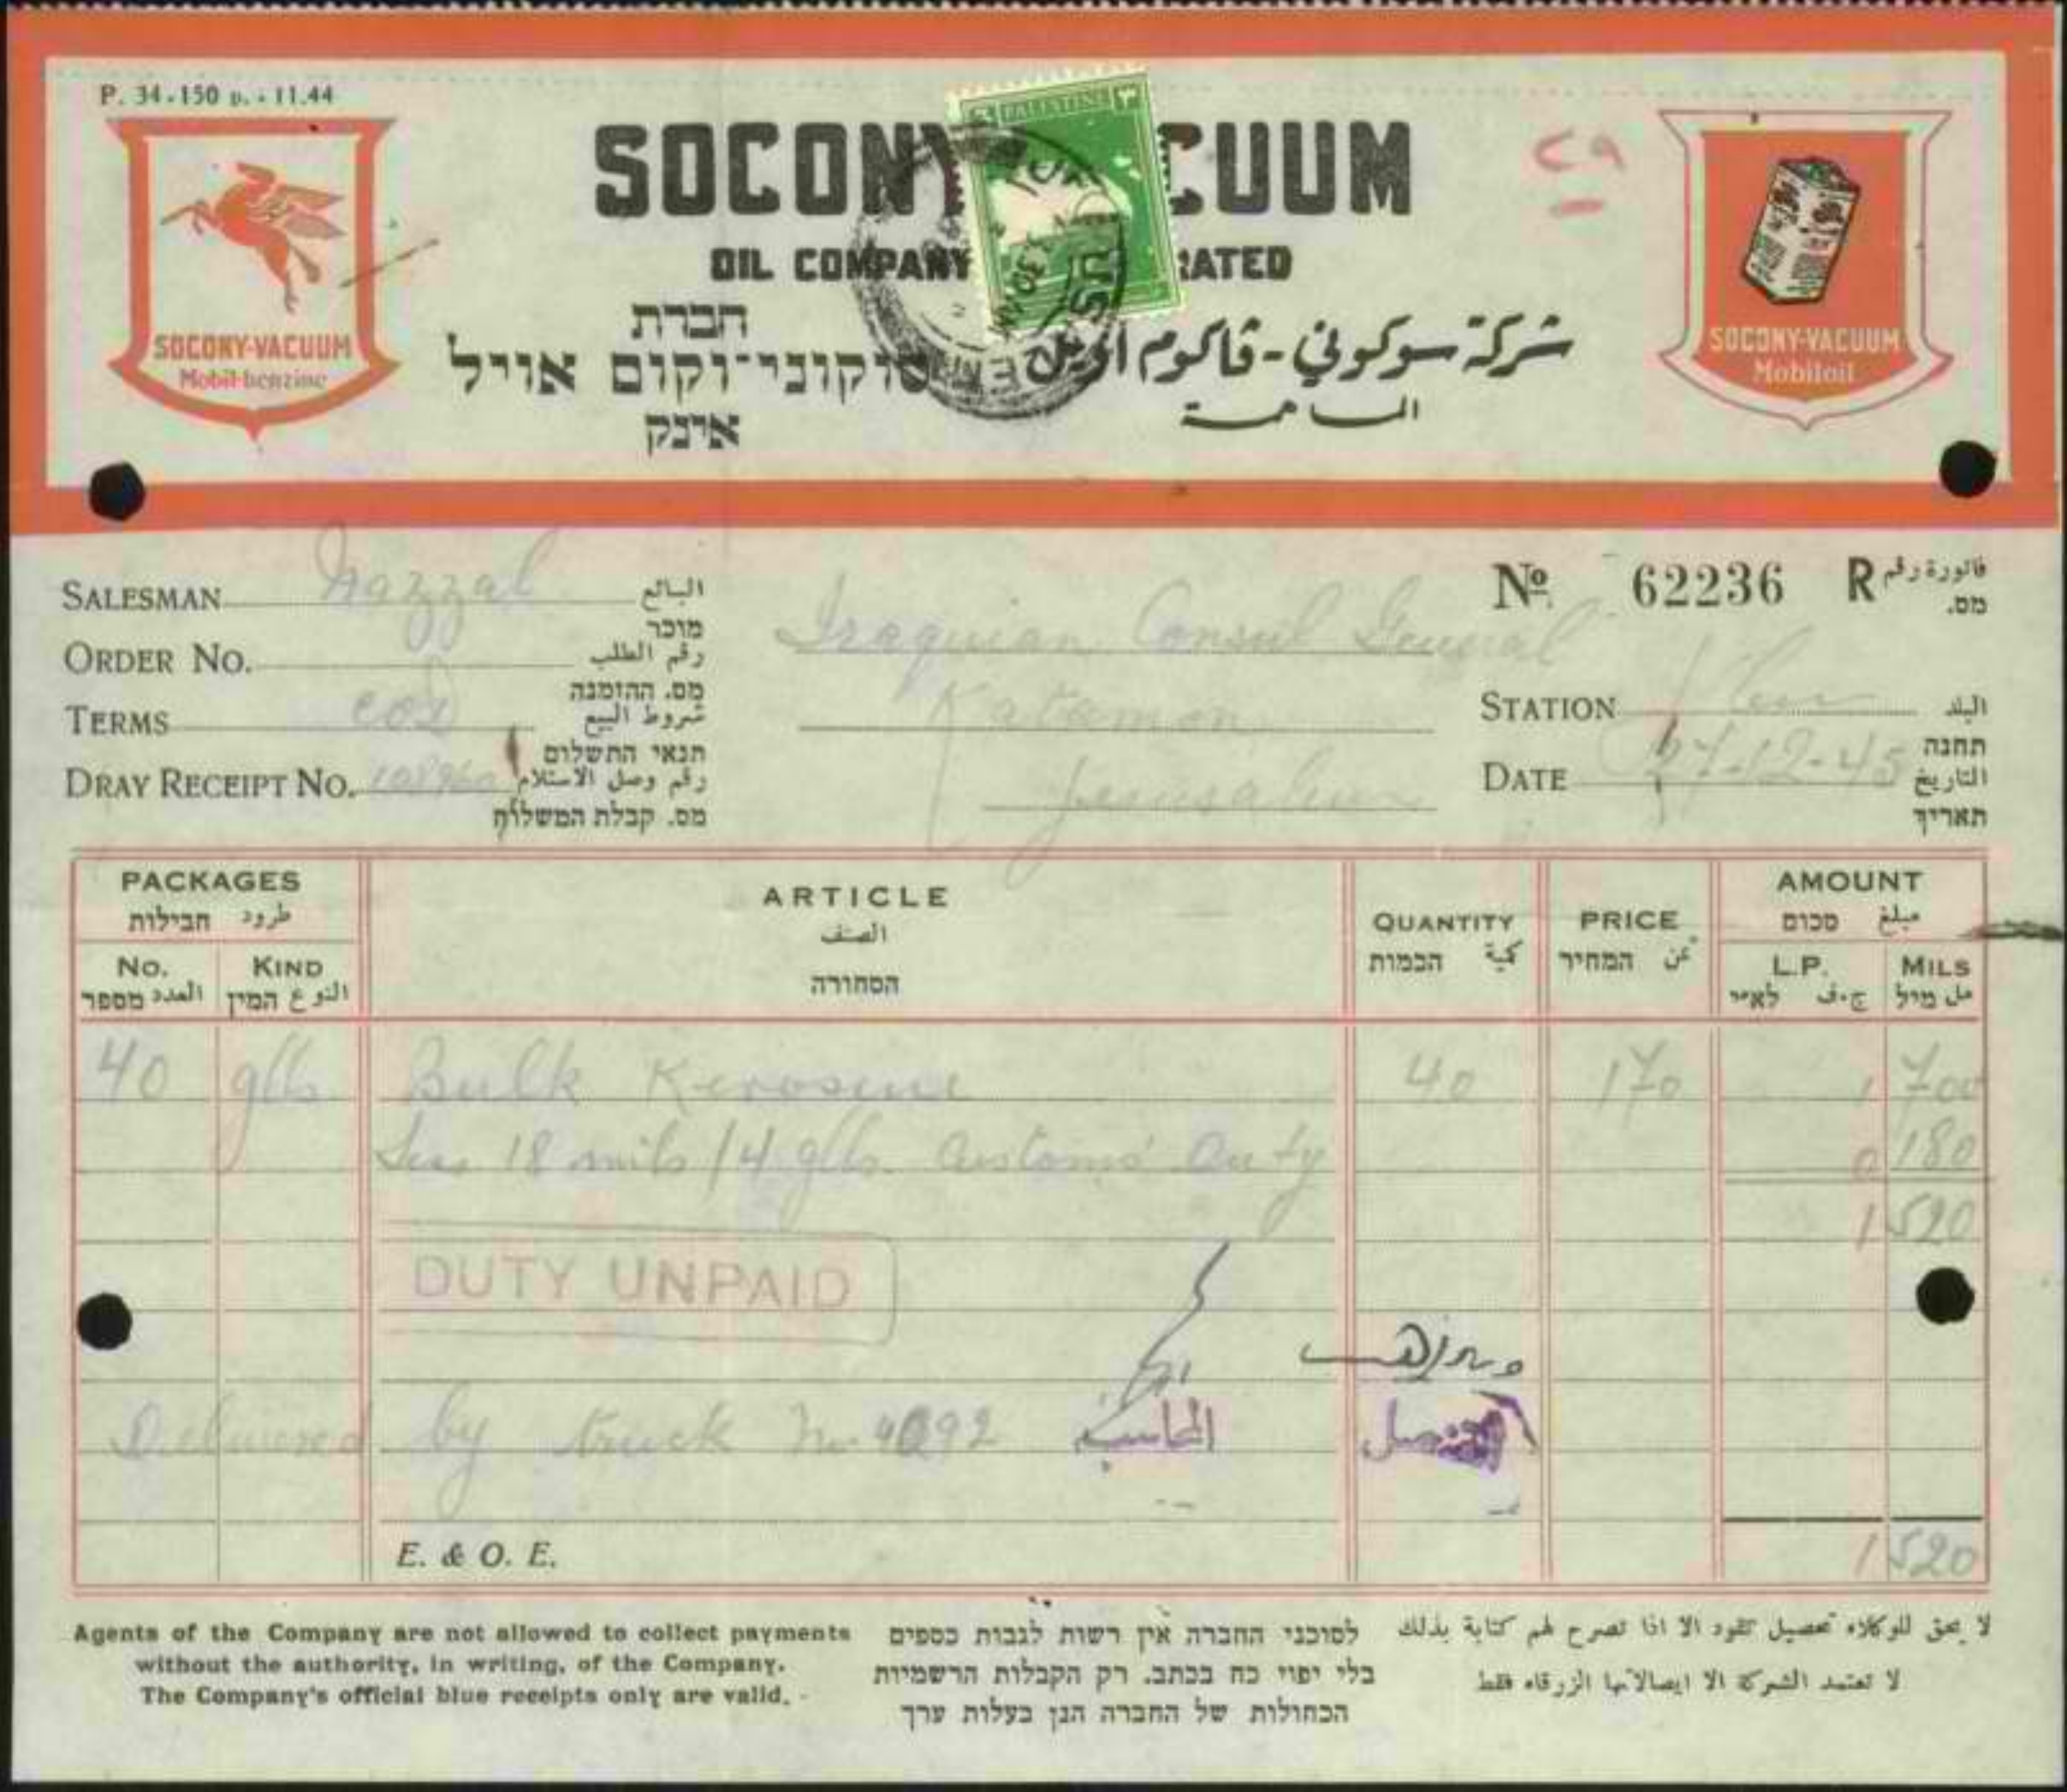 P. 34-150 p. - 11.44
SOCONY VACUUM
OIL COMPANY
חברת
סוקוני־וקום אויל
אינק
شركة سوكوني - ڤاكوم اويل
المساهمة
٢٩
PALESTINE
SOCONY-VACUUM
Mobil-benzine
SOCONY-VACUUM
Mobiloil
Nº 62236 R فاتورة رقم
מס.
SALESMAN Nazzal البائع
מוכר
ORDER No. رقم الطلب
מס. ההזמנה
TERMS COD شروط البيع
תנאי התשלום
DRAY RECEIPT No. رقم وصل الاستلام
מס. קבלת המשלוח
Iraquian Consul General
Katamon
Jerusalem
STATION البلد
תחנה
DATE 27-12-45 التاريخ
תאריך
PACKAGES
חבילות طرود
No. KIND
العدد מספר النوع המין
ARTICLE
الصنف
הסחורה
QUANTITY
הכמות كمية
PRICE
המחיר ثمن
AMOUNT
סכום مبلغ
L.P. MILS
לא״י ج.ف מיל مل
40 glls Bulk Kerosine 40 170 1 700
Less 18 mils / 4 glls. Customs' Duty 0 180
1 520
DUTY UNPAID
Delivered by truck No 4092
المحاسب
القنصل
E. & O. E. 1 520
Agents of the Company are not allowed to collect payments
without the authority, in writing, of the Company.
The Company's official blue receipts only are valid.
לסוכני החברה אין רשות לגבות כספים
בלי יפוי כח בכתב. רק הקבלות הרשמיות
הכחולות של החברה הנן בעלות ערך
لا يحق للوكلاء تحصيل نقود الا اذا تصرح لهم كتابة بذلك
لا تعتمد الشركة الا ايصالاتها الزرقاء فقط